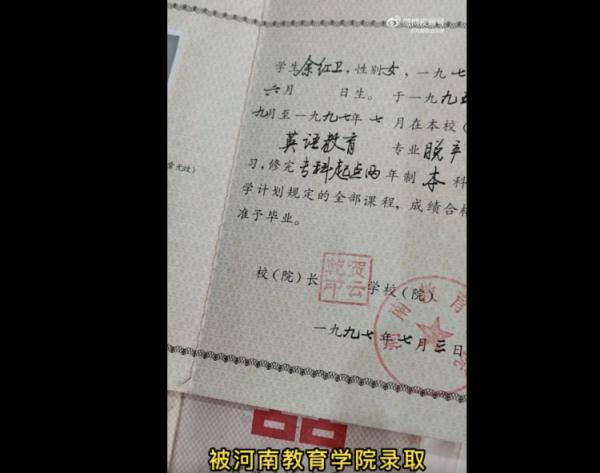 学生余红卫,性别女,一九七
六月 日生。于一九九五
九月至一九九七年七月在本校(
英语教育 专业脱产
习,修完专科起点两年制本科
学计划规定的全部课程,成绩合格
准予毕业。
校(院)长 贺云乾印 学校(院)
河南教育 院
一九九七年七月三日
被河南教育学院录取